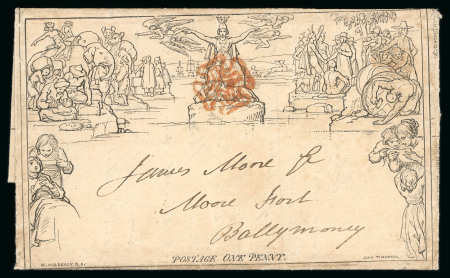 James Moore Esq
Moore Fort
Ballymoney
W. MULREADY, R.A.
POSTAGE ONE PENNY.
JOHN THOMPSON